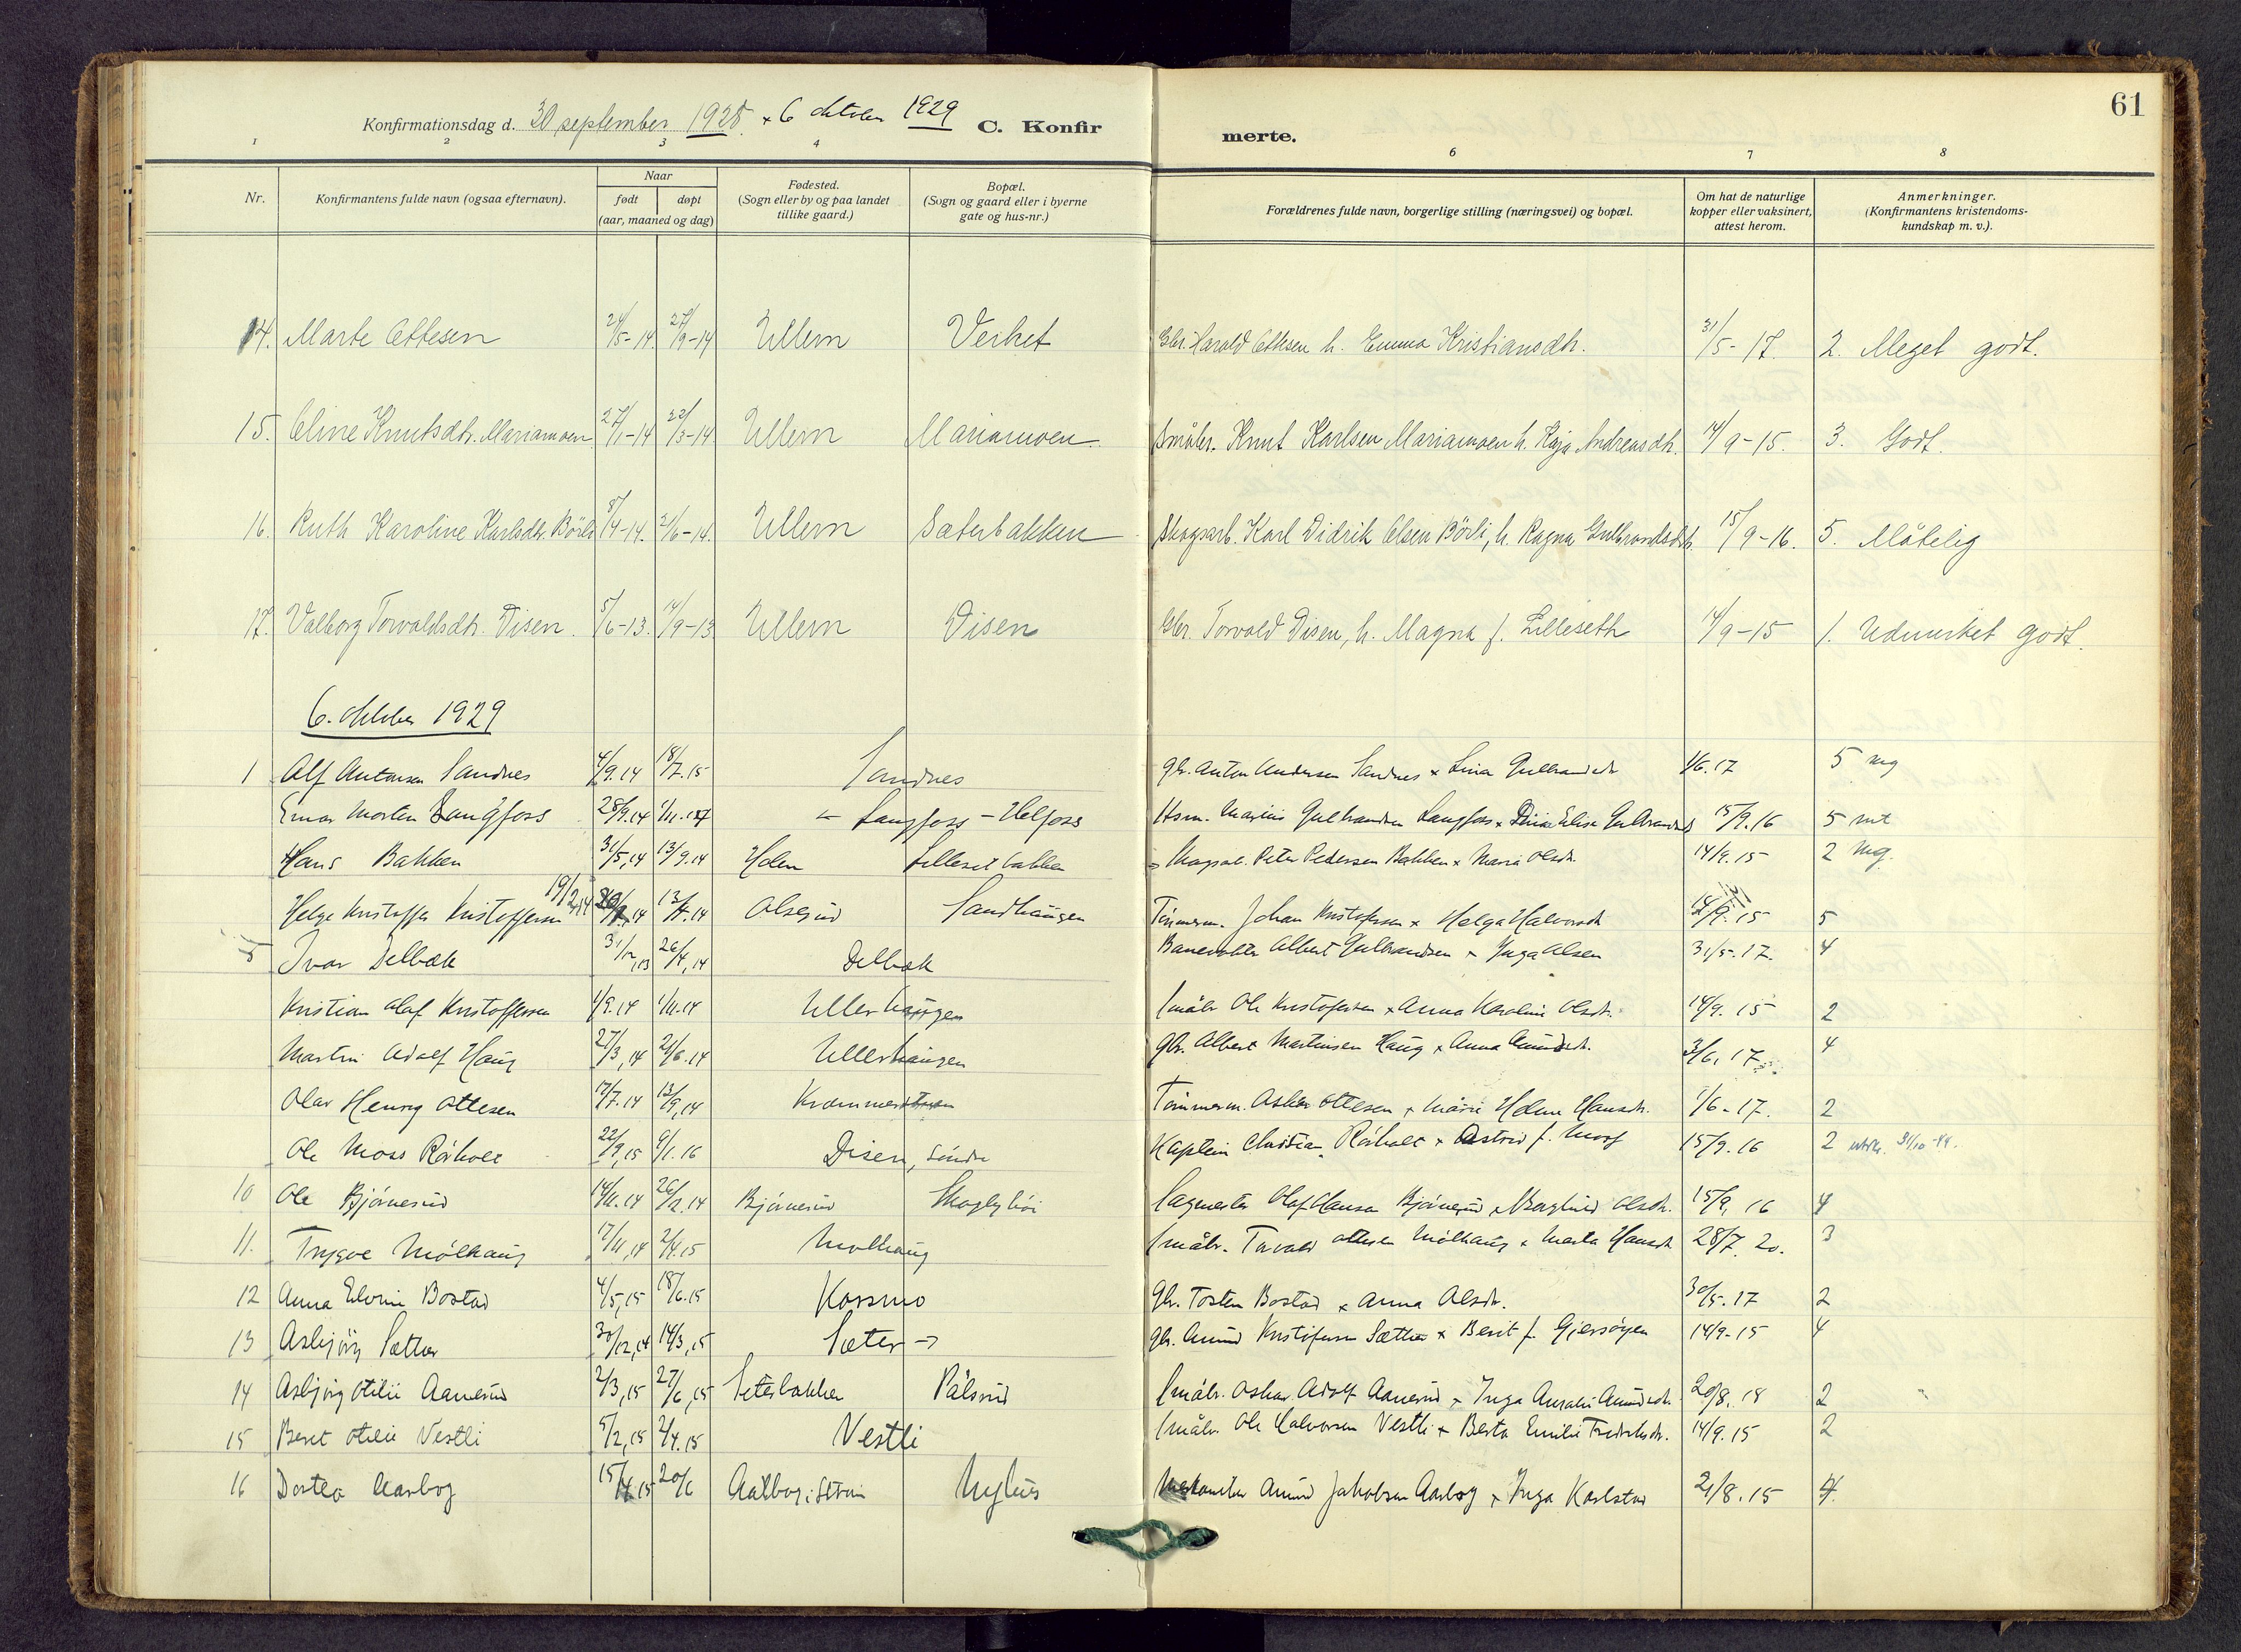 61
Konfirmationsdag d. 30 september 1928 × 6 oktober 1929 C. Konfirmerte.
1 2 3 4 6 7 8
Nr. Konfirmantens fulde navn (ogsaa efternavn). Naar født døpt (aar, maaned og dag) Fødested. (Sogn eller by og paa landet tillike gaard.) Bopæl. (Sogn og gaard eller i byerne gate og hus-nr.) Forældrenes fulde navn, borgerlige stilling (næringsvei) og bopæl. Om hat de naturlige kopper eller vaksinert, attest herom. Anmerkninger. (Konfirmantens kristendoms-kundskap m. v.).
14. Marte Ottesen 24/5-14 27/9-14 Ullern Verket Gbr. Harold Ottesen h. Emma Kristiansdtr. 31/5-17. 2. Meget godt.
15. Oline Knutsdtr. Mariamoen 27/1-14 22/3-14 Ullern Mariamoen Småbr. Knut Karlsen Mariamoen h. Kaja Andreasdtr. 14/9-15. 3. Godt.
16. Ruth Karoline Karlsdtr. Börli 8/4-14. 21/6-14. Ullern Sæterbakken Skogsarb. Karl Didrik Olsen Börli, h. Ragna Gulbrandsdtr. 15/9-16. 5. Måtelig
17. Valborg Torvaldsdtr. Disen. 5/6-13. 14/9-13 Ullern Disen Gbr. Torvald Disen, h. Magna f. Lilleseth 14/9-15 1. Udmerket godt.
6. oktober 1929
1 Alf Antonsen Sandnes 4/9.14 18/7.15 Sandnes gbr. Anton Andersen Sandnes × Lina Gulbrandsdtr 1/6.17 5 mg
Einar Morten Langfoss 28/9.14 1/11.14 Langfoss - Helfoss Hsm. Marius Gulbrandsen Langfoss × 15/9.16 5 mt
Hans Bakken 31/5,14 13/9.14 Holen Lilleset bakken Skogsarb. Peter Pedersen Bakken × Maria Olsdtr. 14/9.15 2 Mg.
Helge Kristoffer Kristoffersen 19/2.14 13/4.14 Olsrud Sandhaugen Tömmerm. Johan Kristoffersen × Helga Halvorsdtr 14/9.15 5
5 Ivar Delbæk 31/12,13 26/4,14 Delbæk Banevokter Albert Gulbrandsen × Inga Olsen 31/5.17. 4
Kristian Olaf Kristoffersen 1/9.14 1/11.14 Ullerhaugen Småbr Ole Kristoffersen × Anna Karoline Olsdtr. 14/9.15 2
Martin Adolf Haug 27/3,14 21/6.14 Ullerhaugen gbr. Albert Martinsen Haug × Anna Amundsdtr. 3/6,17 4
Olav Henry Ottesen 17/7.14 13/9,14 Tömmerm. Asker Ottesen × Marie Helene Hansdtr. 1/6-17. 2
Ole Moss Röiholt 22/9,15 9/1.16 Disen, söndre Kaptein Christian Röiholt × Astrid f. Moss 15/9.16 2 31/10-44.
10 Ole Björnerud 14/11.14 26/12.14 Björnerud Skoglyhöi Sagmester Olaf Hansen Björnerud × Bergliot Olsdtr. 15/9,16 4
11. Trygve Mölhaug 17/11,14 2/4.15 Mølhaug Småbr. Torvald Ottesen Mölhaug × Marta Hansdtr 28/7.20. 3
12 Anna Elvine Bostad 4/5,15 18/6.15 Korsmo Gbr. Tosten Bostad × Anna Olsdtr. 30/5.17 2
13 Asbjörg Sætter 30/12,14 14/3,15 Sæter → gbr. Amund Kristofersen Sætter × Berit f. Gjersöyen 14/9-15 4
14 Asbjörg Otilie Aanerud 2/3,15 27/6,15 Seterbakken Pålsrud Småbr. Oskar Adolf Aanerud × Inga Amalie Amundsdtr. 20/8.18 2
15 Beret Otilie Vestli 5/2,15 2/4.15 Vestli Småbr. Ole Halvorsen Vestli × Berta Emilie Fredriksdtr. 14/9.15 2
16 Dortea Aarbog 15/4.15 20/6 Nyhus Amund Jakobsen Aarbog × Inga Karlstad 21/8.15 4